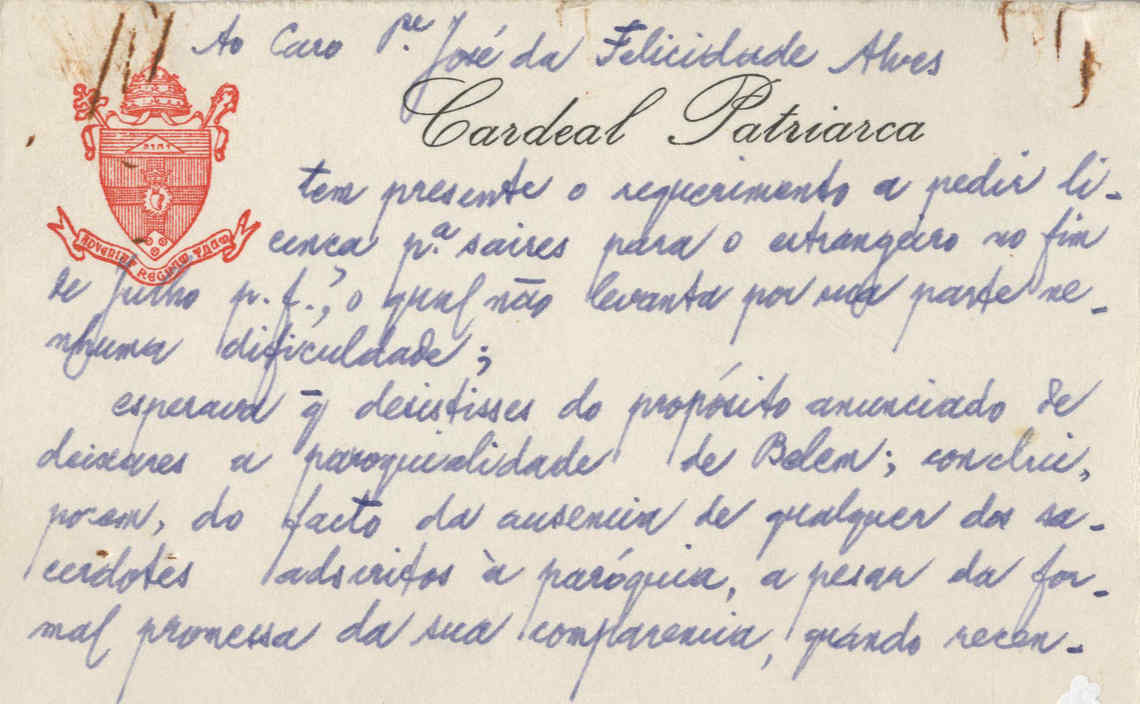 Ao Caro P.e José da Felicidade Alves
Cardeal Patriarca
ADVENIAT REGNUM TUUM
tem presente o requerimento a pedir li-
cença p.ª saires para o estrangeiro no fim
de Julho p. f., o qual não levanta por sua parte ne-
nhuma dificuldade;
esperava q̄ desistisses do propósito anunciado de
deixares a paroquialidade de Belem; conclui,
porem, do facto da ausencia de qualquer dos sa-
cerdotes adscritos à paróquia, a pesar da for-
mal promessa da sua comparencia, quando recen-